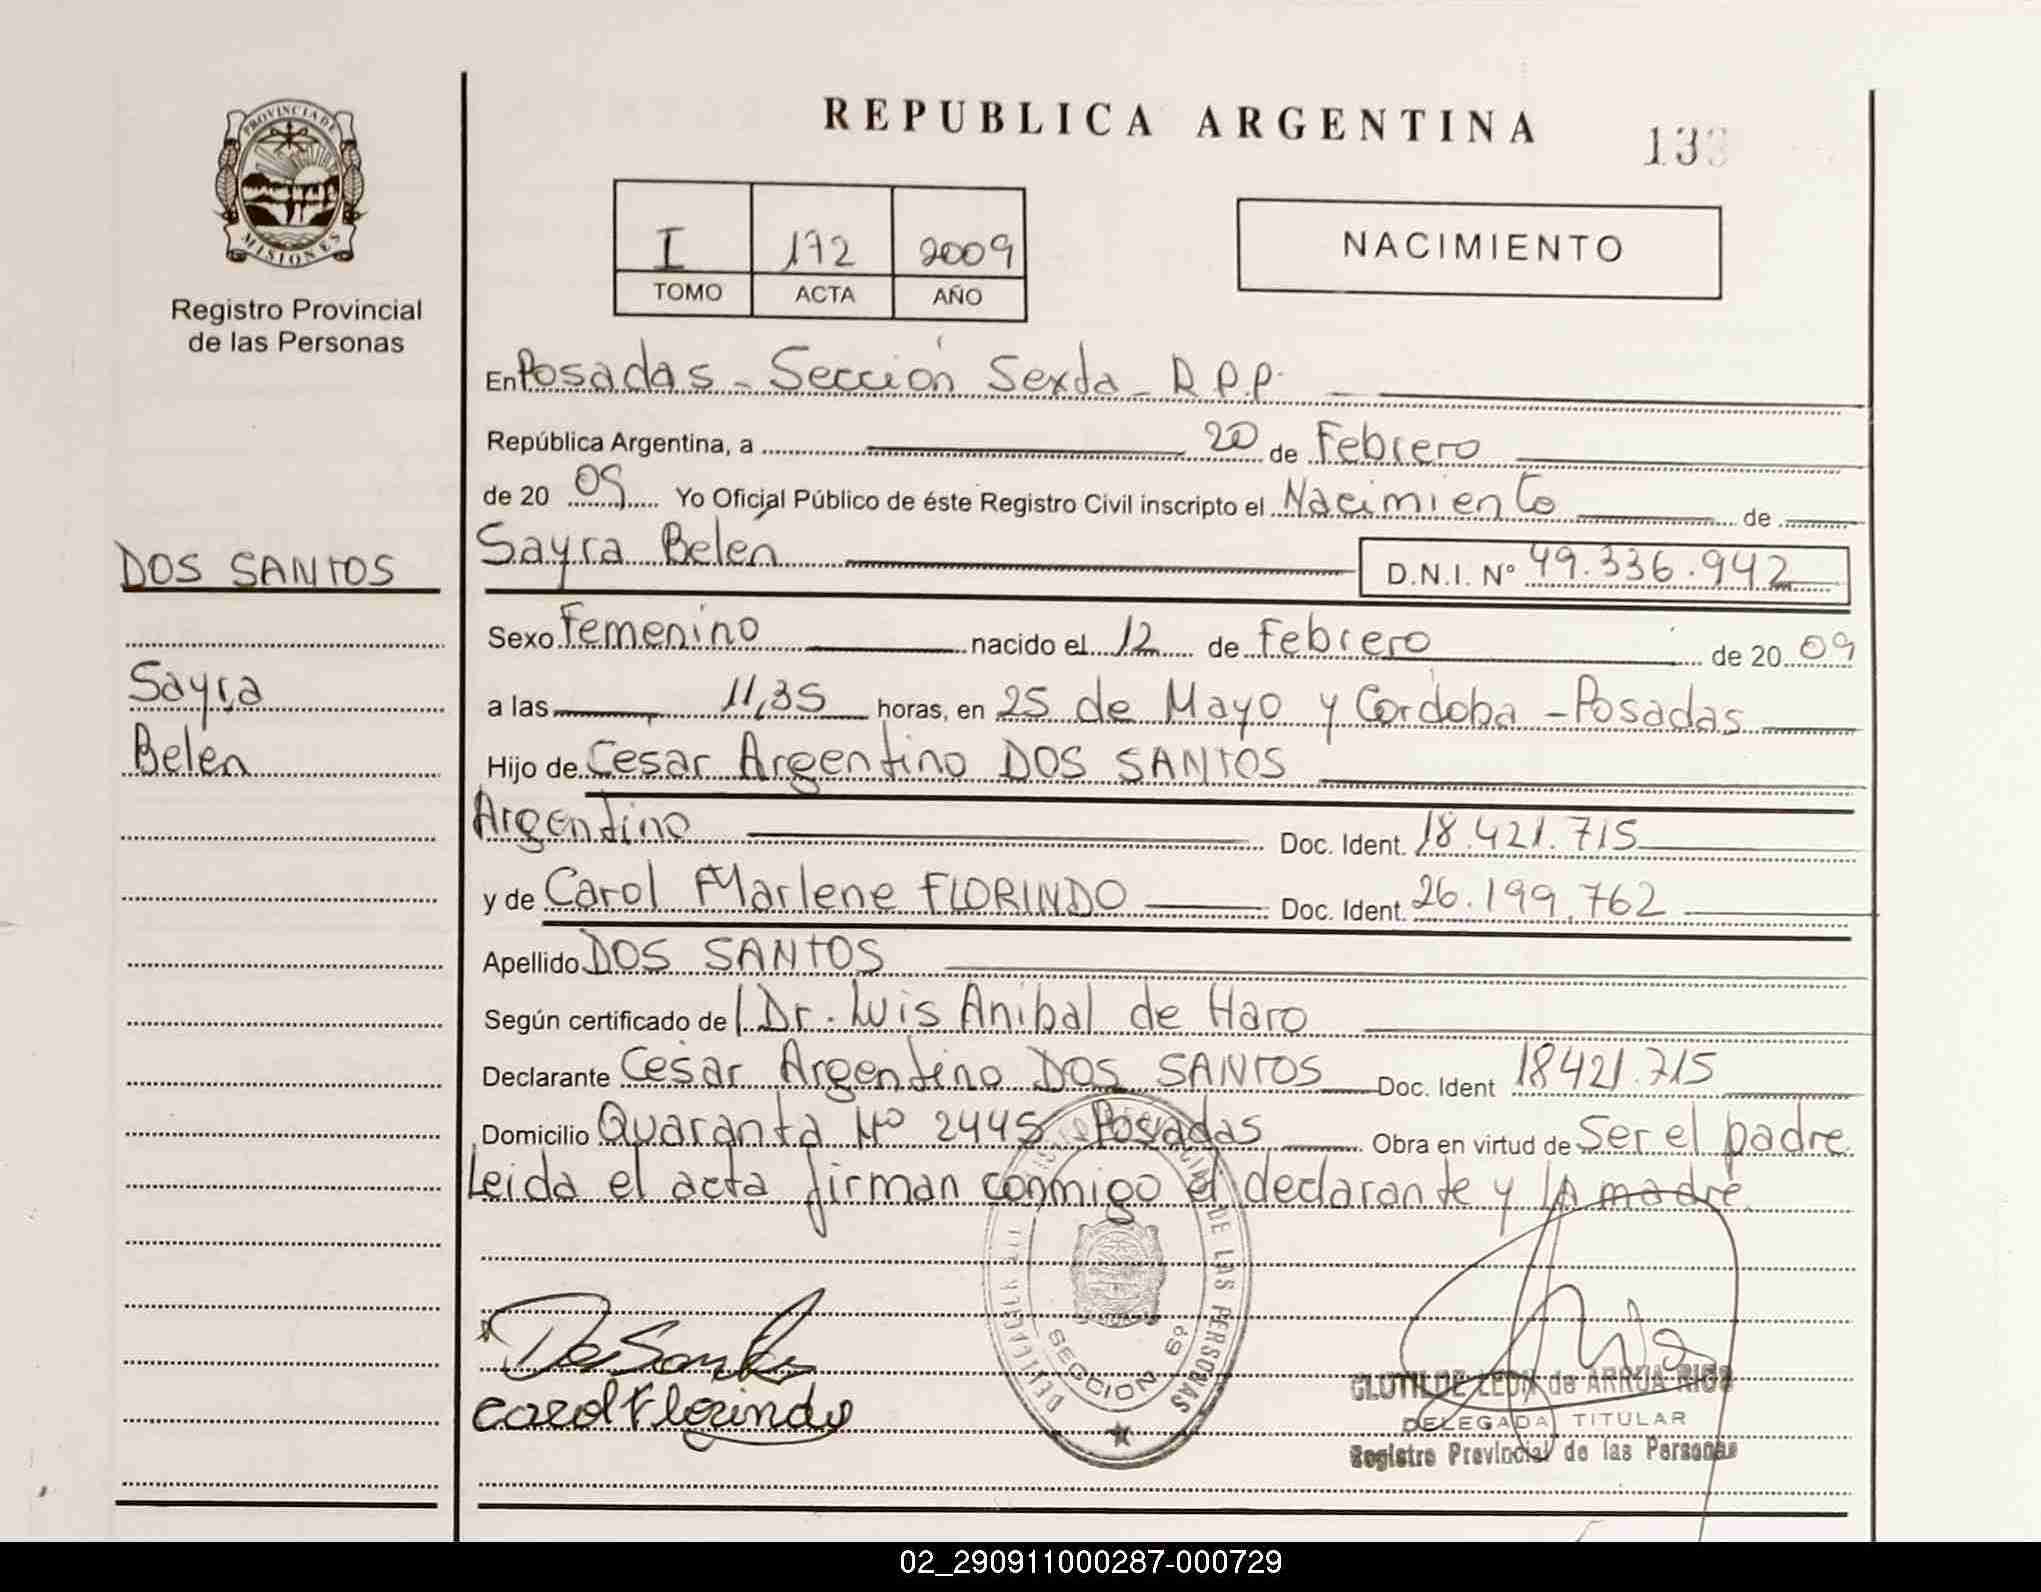 PROVINCIA DE
MISIONES
Registro Provincial
de las Personas
DOS SANTOS
Sayra
Belén
REPUBLICA ARGENTINA
I 172 2009
TOMO ACTA AÑO
NACIMIENTO
En Posadas - Sección Sexta - R.P.P.
República Argentina, a 20 de Febrero
de 20 09 Yo Oficial Público de éste Registro Civil inscripto el Nacimiento de
Sayra Belén D.N.I. Nº 49.336.942
Sexo Femenino nacido el 12 de Febrero de 20 09
a las 11,35 horas, en 25 de Mayo y Cordoba - Posadas
Hijo de César Argentino DOS SANTOS
Argentino Doc. Ident. 18.421.715
y de Carol Marlene FLORINDO Doc. Ident. 26.199.762
Apellido DOS SANTOS
Según certificado de l Dr. Luis Anibal de Haro
Declarante César Argentino DOS SANTOS Doc. Ident 18421.715
Domicilio Quaranta Nº 2445 Posadas Obra en virtud de Ser el padre
Leida el acta firman conmigo el declarante y la madre.
DE LAS PERSONAS
SECCION 6º
DosSantos
Carol Florindo
CLOTILDE LEON de ARRUA RIOS
DELEGADA TITULAR
Registro Provincial de las Personas
02_290911000287-000729